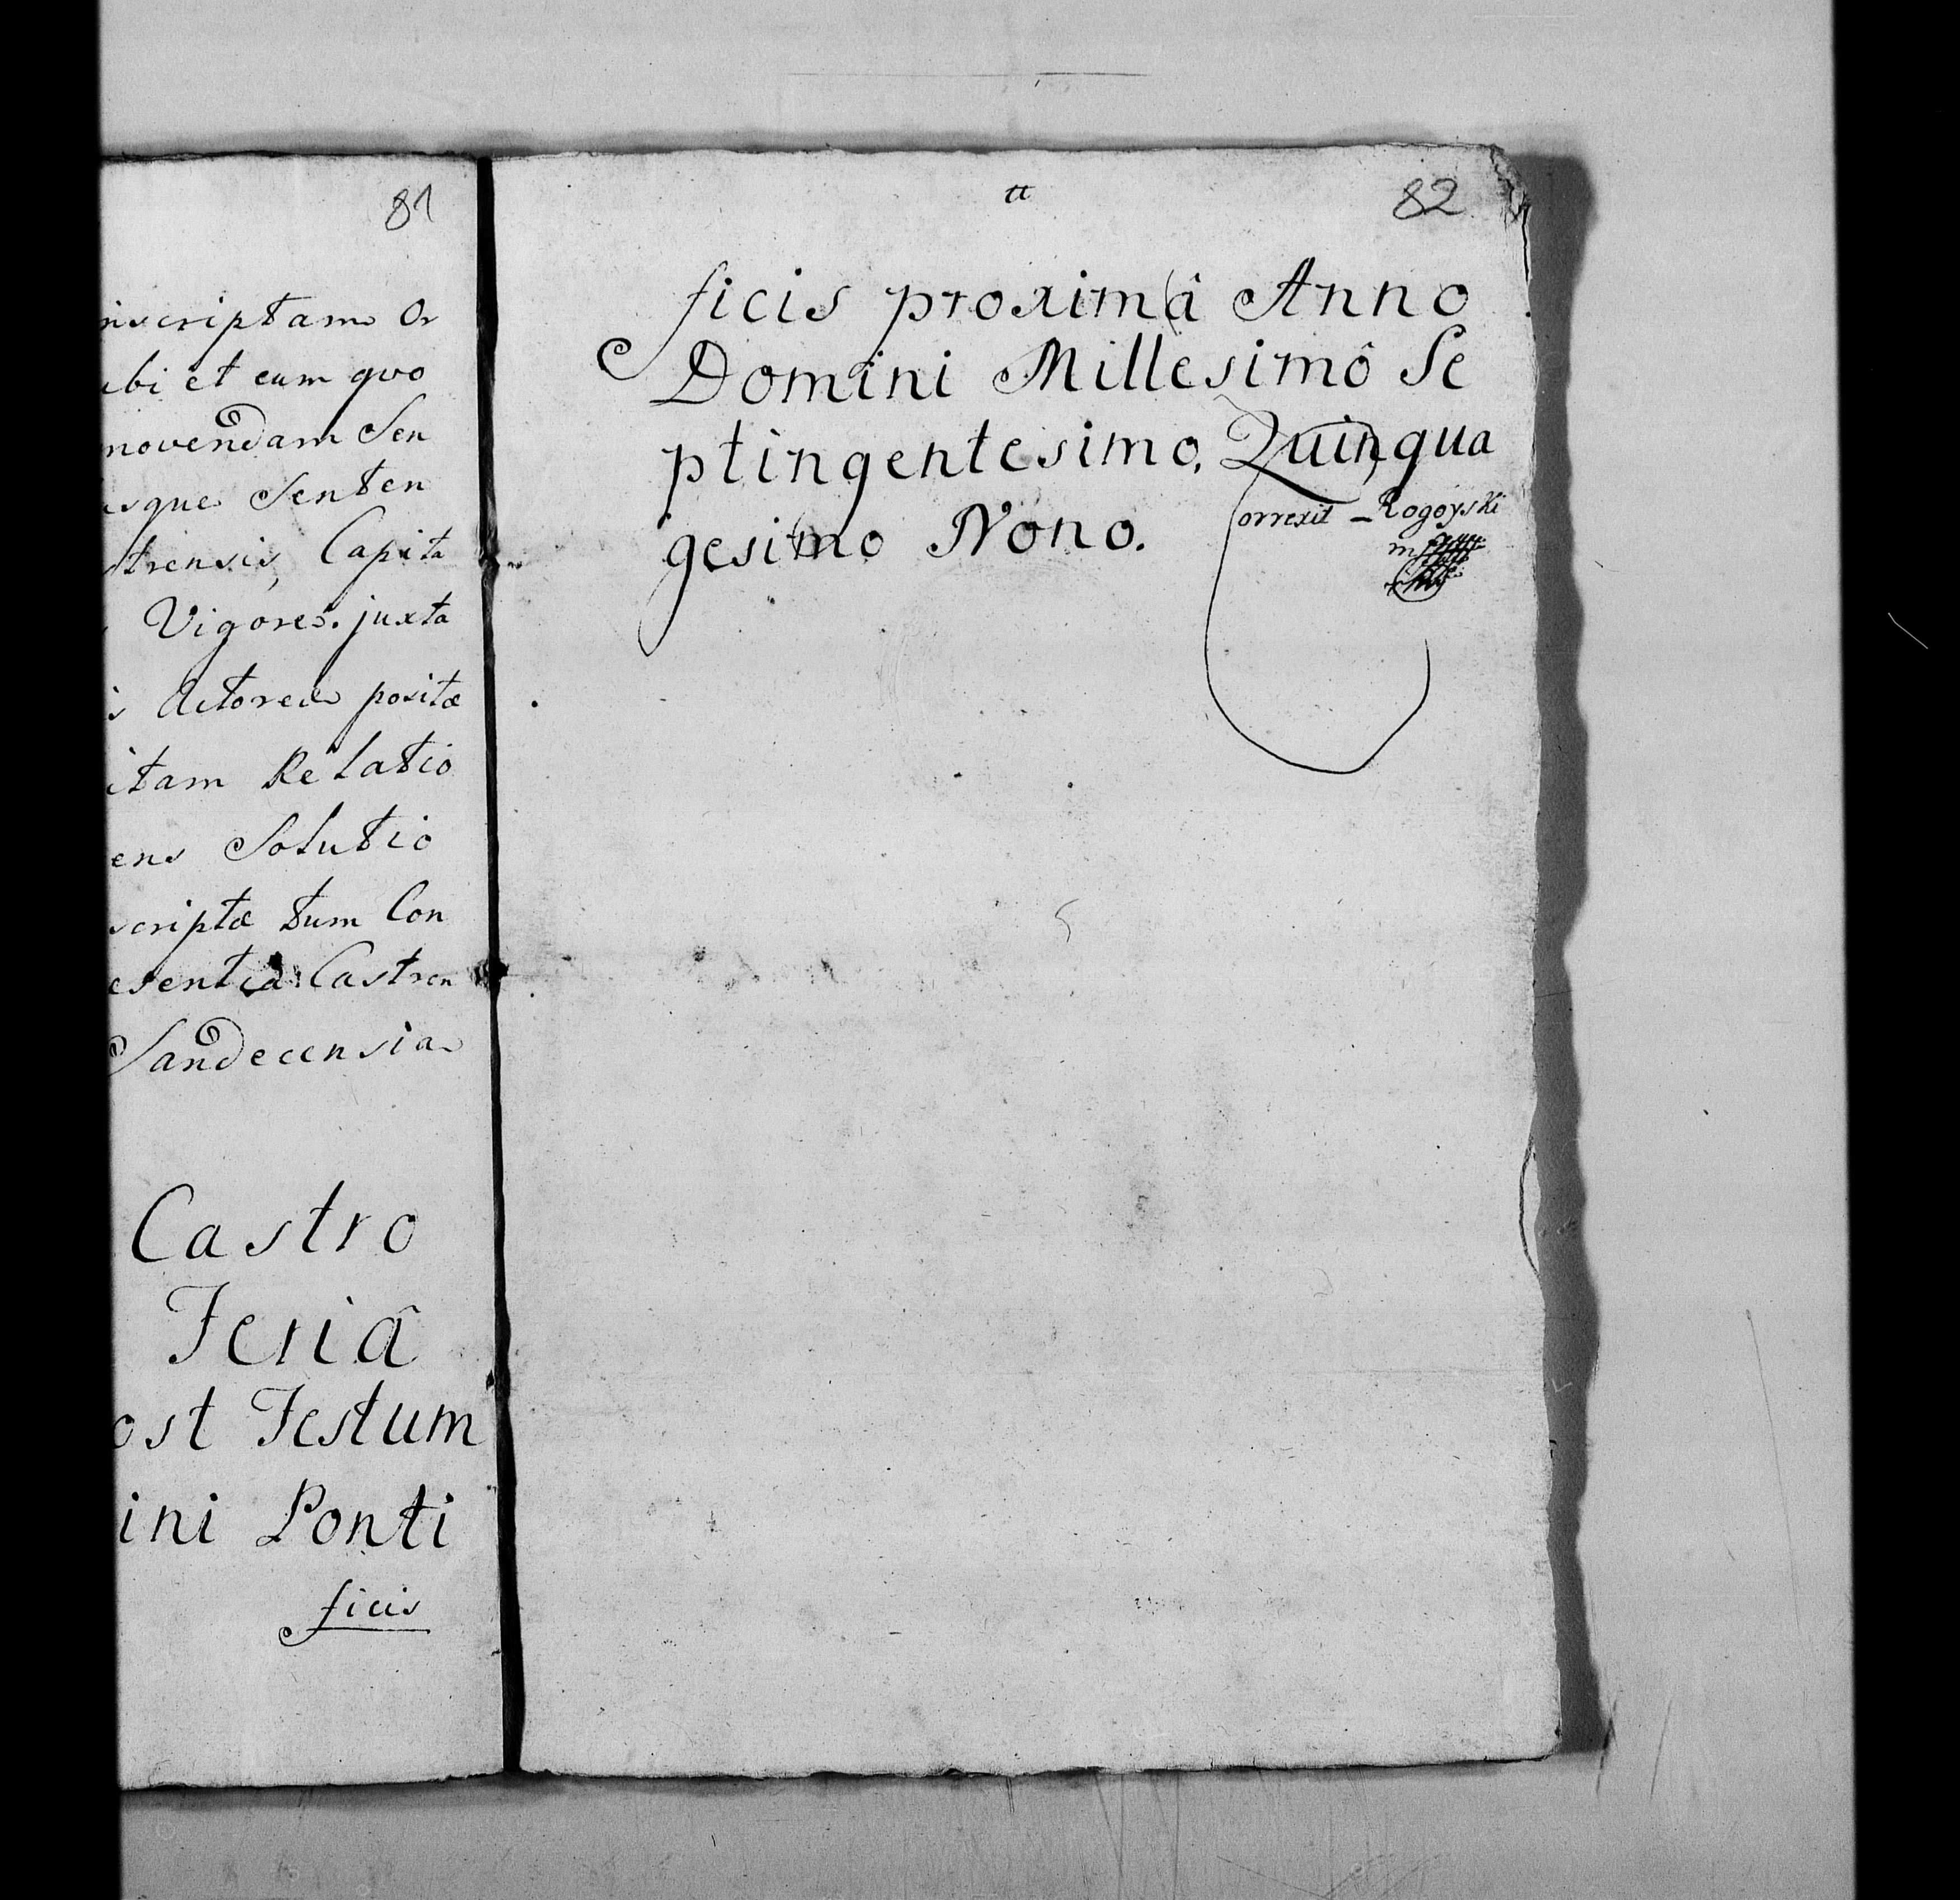 81
nscriptam Or
ubi et cum quo
movendam Sen
usque Senten
strensis, Capita
Vigores. juxta
is Actorea positæ
itam Relatio
ens Solutio
scriptæ tum Con
esentia Castren
Sandecensia
Castro
Feriâ
ost Festum
ini Ponti
ficis
82
ficis proximâ Anno
Domini Millesimô Se
ptingentesimo, Quinqua
gesimo Nono.
Correxit – Rogoyski